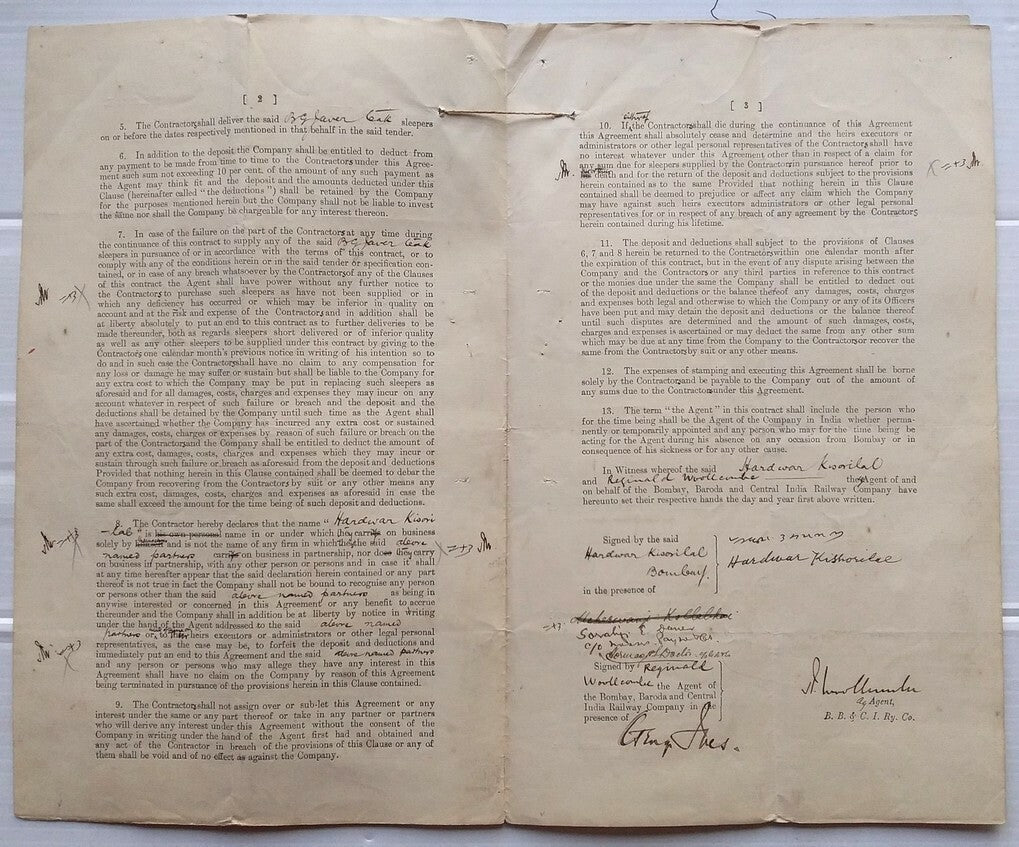 [ 2 ]
5. The Contractors shall deliver the said BG Javer Teak sleepers
on or before the dates respectively mentioned in that behalf in the said tender.
6. In addition to the deposit the Company shall be entitled to deduct from
any payment to be made from time to time to the Contractors under this Agree-
ment such sum not exceeding 10 per cent. of the amount of any such payment as
the Agent may think fit and the deposit and the amounts deducted under this
Clause (hereinafter called "the deductions") shall be retained by the Company
for the purposes mentioned herein but the Company shall not be liable to invest
the same nor shall the Company be chargeable for any interest thereon.
7. In case of the failure on the part of the Contractors at any time during
the continuance of this contract to supply any of the said BG Javer Teak
sleepers in pursuance of or in accordance with the terms of this contract, or to
comply with any of the conditions herein or in the said tender or specification con-
tained, or in case of any breach whatsoever by the Contractors of any of the Clauses
of this contract the Agent shall have power without any further notice to
the Contractors to purchase such sleepers as have not been supplied or in
which any deficiency has occurred or which may be inferior in quality on
account and at the risk and expense of the Contractors and in addition shall be
at liberty absolutely to put an end to this contract as to further deliveries to be
made thereunder, both as regards sleepers short delivered or of inferior quality
as well as any other sleepers to be supplied under this contract by giving to the
Contractors one calendar month's previous notice in writing of his intention so to
do and in such case the Contractors shall have no claim to any compensation for
any loss or damage he may suffer or sustain but shall be liable to the Company for
any extra cost to which the Company may be put in replacing such sleepers as
aforesaid and for all damages, costs, charges and expenses they may incur on any
account whatever in respect of such failure or breach and the deposit and the
deductions shall be detained by the Company until such time as the Agent shall
have ascertained whether the Company has incurred any extra cost or sustained
any damages, costs, charges or expenses by reason of such failure or breach on the
part of the Contractors and the Company shall be entitled to deduct the amount of
any extra cost, damages, costs, charges and expenses which they may incur or
sustain through such failure or breach as aforesaid from the deposit and deductions
Provided that nothing herein in this Clause contained shall be deemed to debar the
Company from recovering from the Contractors by suit or any other means any
such extra cost, damages, costs, charges and expenses as aforesaid in case the
same shall exceed the amount for the time being of such deposit and deductions.
8. The Contractor hereby declares that the name "Hardwar Kisori
-lal" is his own personal name in or under which they carry on business
solely by and is not the name of any firm in which the said above
named partners carry on business in partnership, nor does they carry
on business in partnership, with any other person or persons and in case it shall
at any time hereafter appear that the said declaration herein contained or any part
thereof is not true in fact the Company shall not be bound to recognise any person
or persons other than the said above named partners as being in
anywise interested or concerned in this Agreement or any benefit to accrue
thereunder and the Company shall in addition be at liberty by notice in writing
under the hand of the Agent addressed to the said above named
partners or to their heirs executors or administrators or other legal personal
representatives, as the case may be, to forfeit the deposit and deductions and
immediately put an end to this Agreement and the said above named partners
and any person or persons who may allege they have any interest in this
Agreement shall have no claim on the Company by reason of this Agreement
being terminated in pursuance of the provisions herein in this Clause contained.
9. The Contractors shall not assign over or sub-let this Agreement or any
interest under the same or any part thereof or take in any partner or partners
who will derive any interest under this Agreement without the consent of the
Company in writing under the hand of the Agent first had and obtained and
any act of the Contractor in breach of the provisions of this Clause or any of
them shall be void and of no effect as against the Company.
[ 3 ]
10. If either of the Contractors shall die during the continuance of this Agreement
this Agreement shall absolutely cease and determine and the heirs executors or
administrators or other legal personal representatives of the Contractors shall have
no interest whatever under this Agreement other than in respect of a claim for
any sum due for sleepers supplied by the Contractor in pursuance hereof prior to
death and for the return of the deposit and deductions subject to the provisions
herein contained as to the same Provided that nothing herein in this Clause
contained shall be deemed to prejudice or affect any claim which the Company
may have against such heirs executors administrators or other legal personal
representatives for or in respect of any breach of any agreement by the Contractors
herein contained during his lifetime.
11. The deposit and deductions shall subject to the provisions of Clauses
6, 7 and 8 herein be returned to the Contractors within one calendar month after
the expiration of this contract, but in the event of any dispute arising between the
Company and the Contractors or any third parties in reference to this contract
or the monies due under the same the Company shall be entitled to deduct out
of the deposit and deductions or the balance thereof any damages, costs, charges
and expenses both legal and otherwise to which the Company or any of its Officers
have been put and may detain the deposit and deductions or the balance thereof
until such disputes are determined and the amount of such damages, costs,
charges and expenses is ascertained or may deduct the same from any other sum
which may be due at any time from the Company to the Contractors or recover the
same from the Contractors by suit or any other means.
12. The expenses of stamping and executing this Agreement shall be borne
solely by the Contractors and be payable to the Company out of the amount of
any sums due to the Contractors under this Agreement.
13. The term "the Agent" in this contract shall include the person who
for the time being shall be the Agent of the Company in India whether perma-
nently or temporarily appointed and any person who may for the time being be
acting for the Agent during his absence on any occasion from Bombay or in
consequence of his sickness or for any other cause.
In Witness whereof the said Hardwar Kisorilal
and Reginald Woollcombe the Agent of and
on behalf of the Bombay, Baroda and Central India Railway Company have
hereunto set their respective hands the day and year first above written.
Signed by the said
Hardwar Kisorilal
Bombay.
in the presence of
Hardwar Kishorilal
Signed by Reginald
Woollcombe the Agent of
the Bombay, Baroda and Central
India Railway Company in the
presence of
Agent,
B. B. & C. I. Ry. Co.